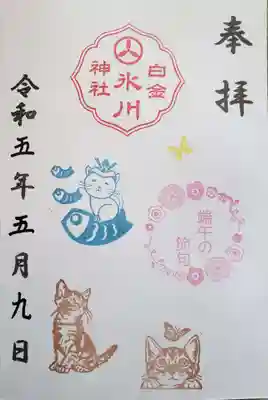 奉拝
白金
氷川
神社
端午の
節句
令和五年五月九日